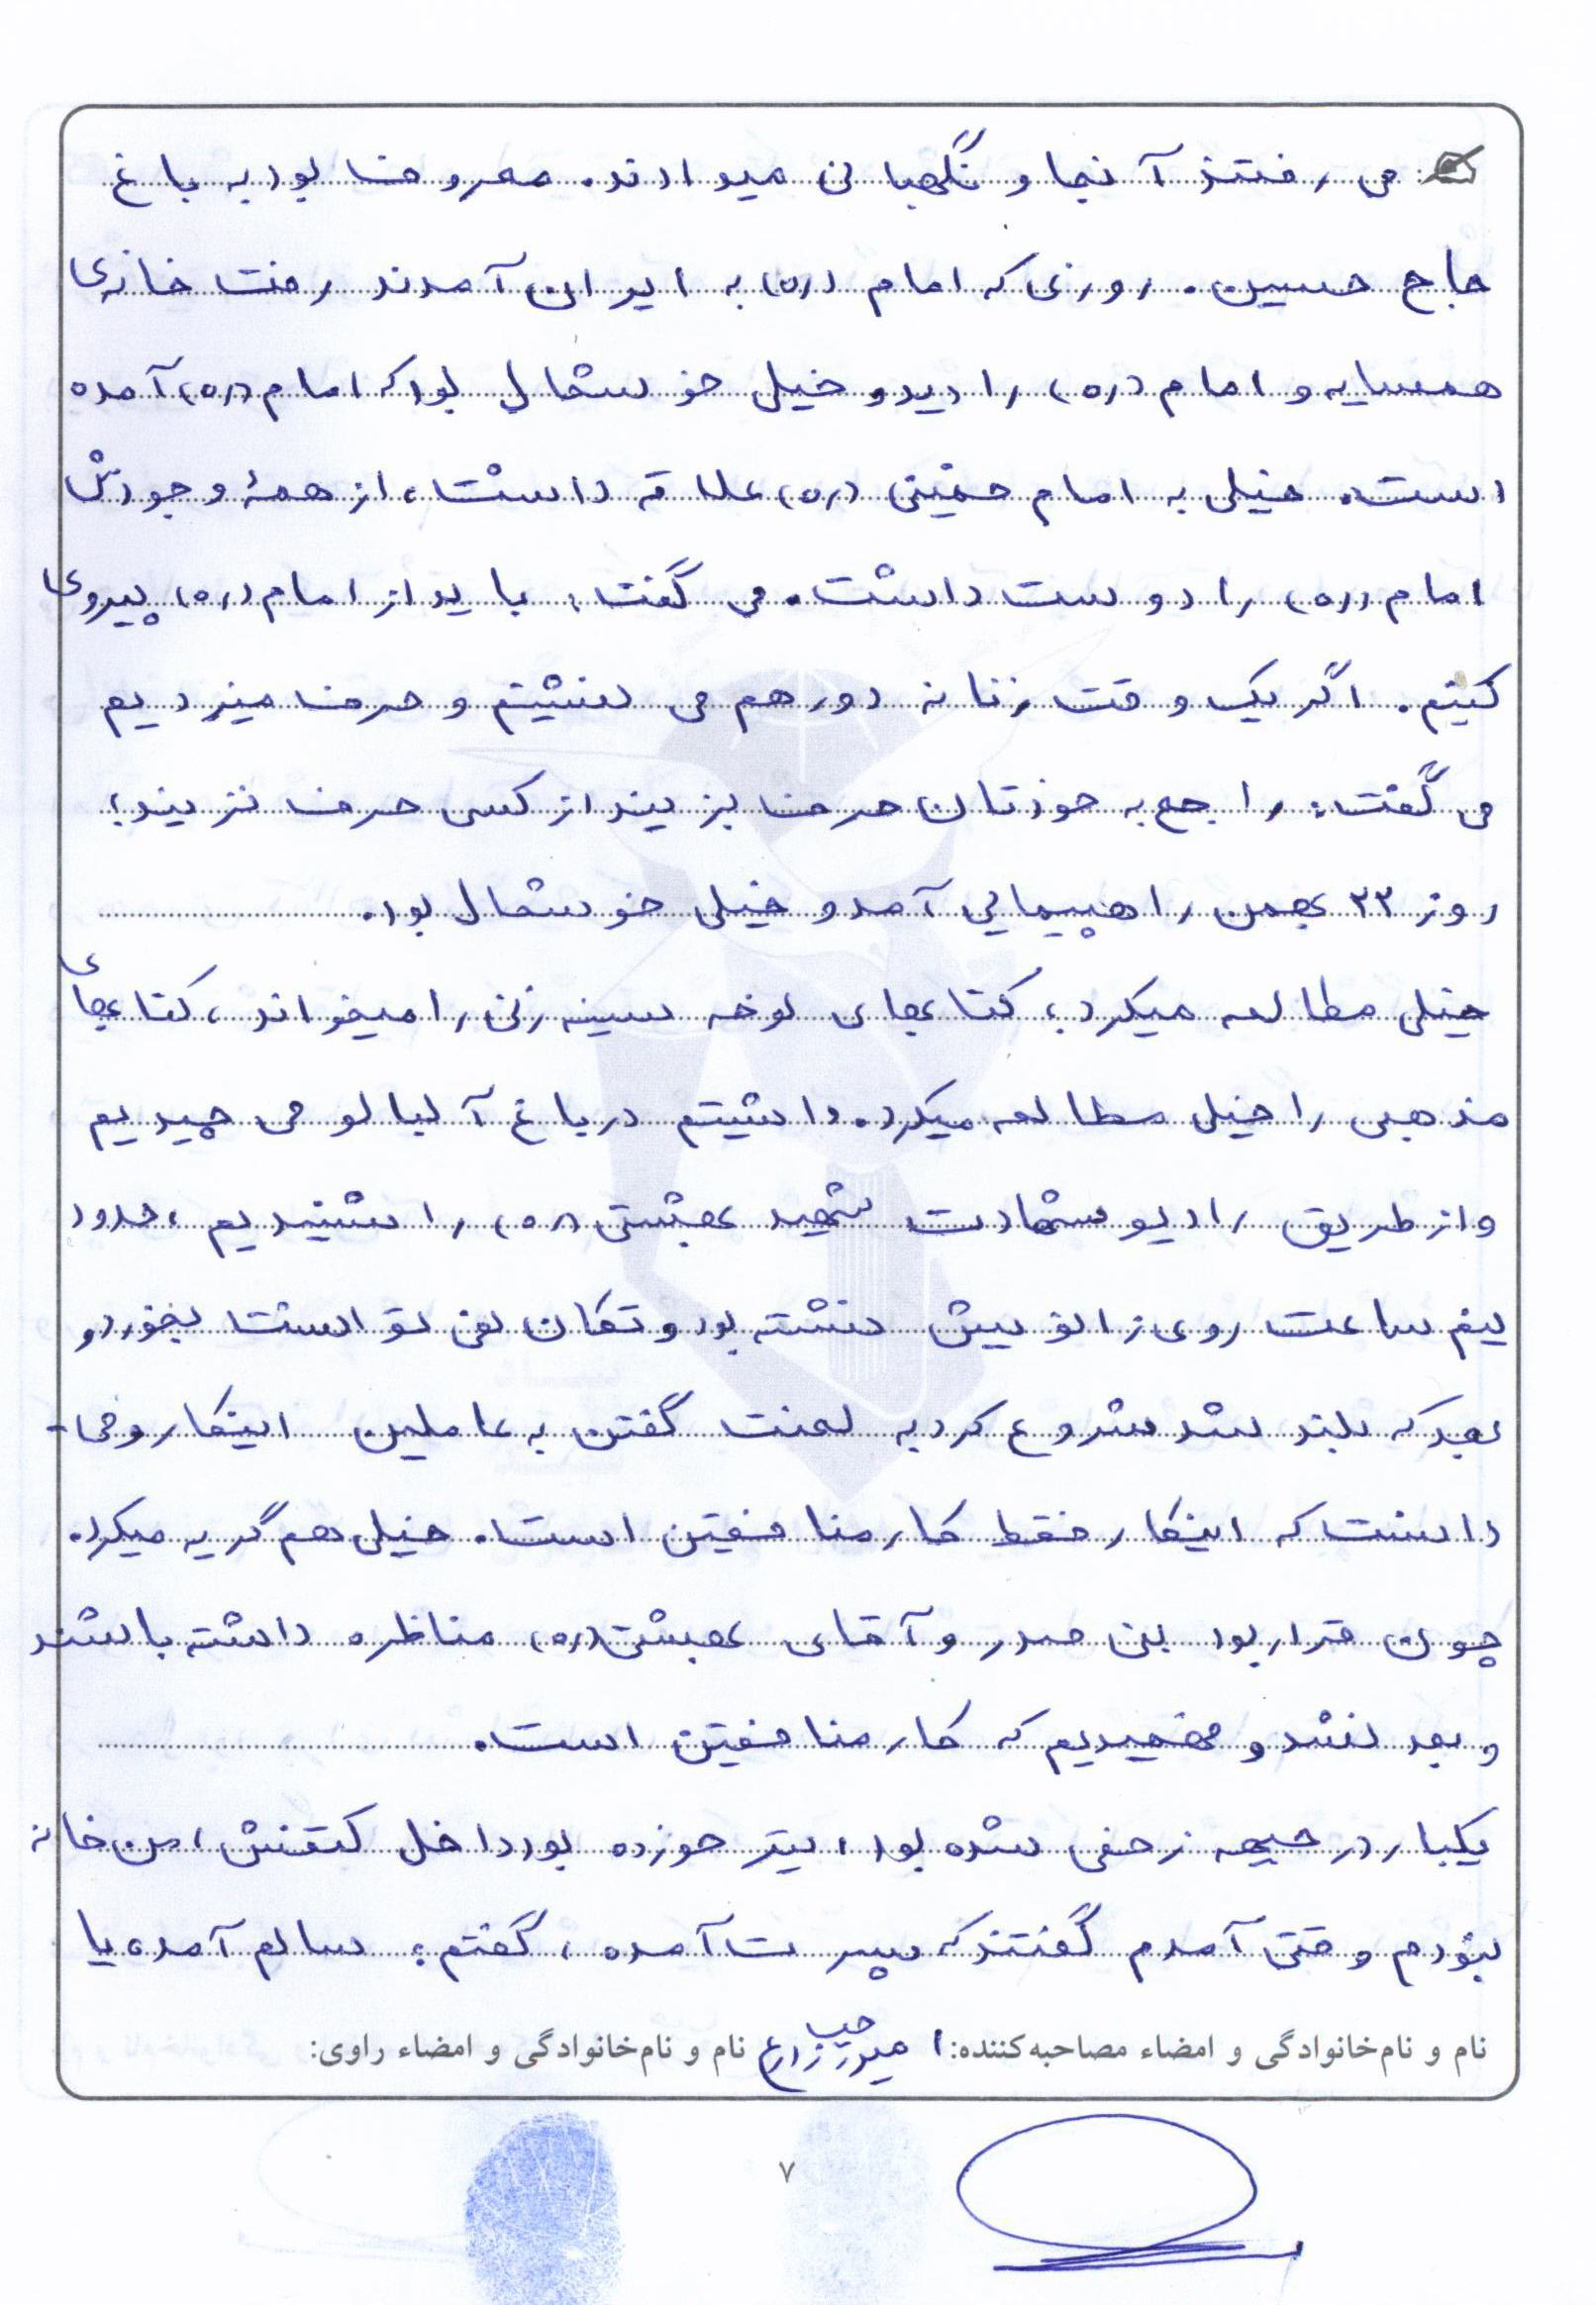 می رفتند آنجا و نگهبانی میدادند. معروف بود به باغ
حاج حسین. روزی که امام (ره) به ایران آمدند رفت خانه‌ی
همسایه و امام (ره) را دید و خیلی خوشحال بود که امام (ره) آمده
است. خیلی به امام خمینی (ره) علاقه داشت، از همهٔ وجودش
امام (ره) را دوست داشت. می گفت: باید از امام (ره) پیروی
کنیم. اگر یک وقت زنانه دور هم می نشیتم و حرف میزدیم
می گفت: راجع به خودتان حرف بزنیند از کسی حرف نزنیند؛
روز ۲۲ بهمن راهپیمایی آمد و خیلی خوشحال بود.
خیلی مطالعه میکرد؛ کتابهای نوحه سینه زنی را میخواند، کتابهای
مذهبی را خیلی مطالعه میکرد. داشیتم در باغ آلبالو می چیدیم
و از طریق رادیو شهادت شهید بهشتی (ره) را شنیدیم، حدود
نیم ساعت روی زانوییش نشته بود و تکان نمی توانست بخورد و
بعد که بلند شد شروع کرد به لعنت گفتن به عاملین اینکار و می-
دانست که اینکار فقط کار منافقین است. خیلی هم گریه میکرد.
چون قرار بود بنی صدر و آقای بهشتی (ره) مناظره داشته باشند
و بعد نشد و فهمیدیم که کار منافقین است.
یکبار در جبهه زخمی شده بود، تیر خورده بود داخل کتفش، من خانه
نبودم وقتی آمدم گفتند که پسرت آمده، گفتم: سالم آمده یا
نام و نام‌خانوادگی و امضاء مصاحبه‌کننده: نام و نام‌خانوادگی و امضاء راوی:
۷